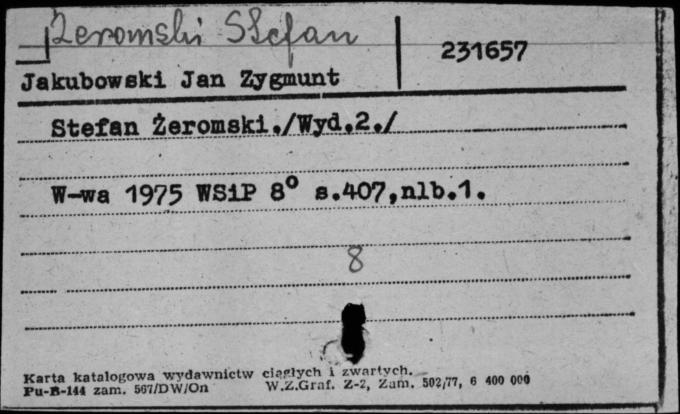 Żeromski Stefan
231657
Jakubowski Jan Zygmunt
Stefan Żeromski./Wyd.2./
W-wa 1975 WSiP 8° s.407,nlb.1.
8
Karta katalogowa wydawnictw ciągłych i zwartych.
Pu-B-144 zam. 567/DW/On W.Z.Graf. Z-2, Zam. 502/77, 6 400 000